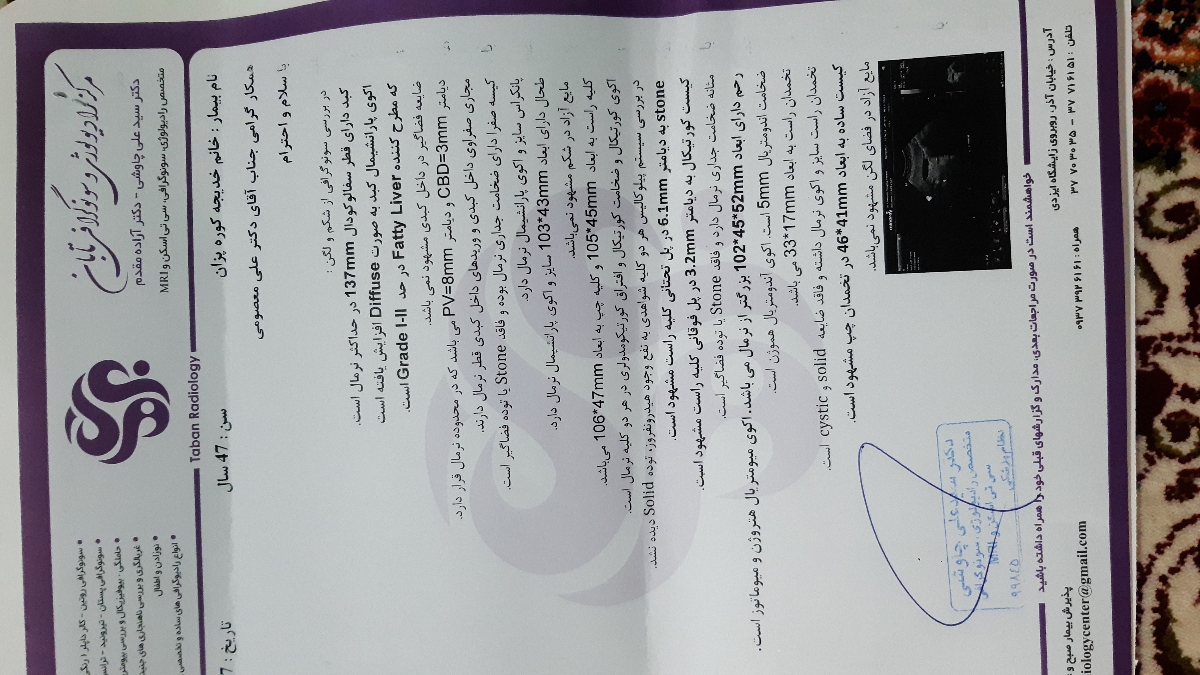 مرکز رادیولوژی و سونوگرافی تابان
دکتر سید علی چاوشی - دکتر آزاده مقدم
متخصص رادیولوژی، سونوگرافی، سی تی اسکن و MRI
Taban Radiology
• سونوگرافی روتین - کالر داپلر ( رنگی
• سونوگرافی پستان - تیروئید - ترانس
• حاملگی - بیوفیزیکال و بررسی بیومتر
• غربالگری و بررسی ناهنجاری های جنینی
• نوزادان و اطفال
• انواع رادیوگرافی های ساده و تخصصی
نام بیمار : خانم خدیجه کوره پزان
سن : 47 سال
تاریخ : 7
همکار گرامی جناب آقای دکتر علی معصومی
با سلام و احترام
در بررسی سونوگرافی از شکم و لگن :
کبد دارای قطر سفالوکودال 137mm در حداکثر نرمال است.
اکوی پارانشیمال کبد به صورت Diffuse افزایش یافته است
که مطرح کننده Fatty Liver در حد Grade I-II است.
ضایعه فضاگیر در داخل کبدی مشهود نمی باشد.
دیامتر CBD=3mm و دیامتر PV=8mm می باشد که در محدوده نرمال قرار دارد.
مجاری صفراوی داخل کبدی و وریدهای داخل کبدی قطر نرمال دارند.
کیسه صفرا دارای ضخامت جداری نرمال بوده و فاقد Stone یا توده فضاگیر است.
پانکراس سایز و اکوی پارانشیمال نرمال دارد.
طحال دارای ابعاد 103*43mm سایز و اکوی پارانشیمال نرمال دارد.
مایع آزاد در شکم مشهود نمی‌باشد.
کلیه راست به ابعاد 105*45mm و کلیه چپ به ابعاد 106*47mm می‌باشد.
اکوی کورتیکال و ضخامت کورتیکال و افتراق کورتیکومدولری در هر دو کلیه نرمال است.
در بررسی سیستم پیلوکالیس هر دو کلیه شواهدی به نفع وجود هیدرونفروز، توده Solid دیده نشد.
stone به دیامتر 6.1mm در پل تحتانی کلیه راست مشهود است.
کیست کورتیکال به دیامتر 3.2mm در پل فوقانی کلیه راست مشهود است.
مثانه ضخامت جداری نرمال دارد و فاقد Stone یا توده فضاگیر است.
رحم دارای ابعاد 102*45*52mm بزرگتر از نرمال می باشد. اکوی میومتریال هتروژن و میوماتوز است.
ضخامت اندومتریال 5mm است. اکوی آندومتریال هموژن است.
تخمدان راست به ابعاد 33*17mm می باشد.
تخمدان راست سایز و اکوی نرمال داشته و فاقد ضایعه solid و cystic است.
کیست ساده به ابعاد 46*41mm در تخمدان چپ مشهود است.
مایع آزاد در فضای لگن مشهود نمی‌باشد.
دکتر سیدعلی چاوشی
متخصص رادیولوژی، سونوگرافی
سی تی اسکن و MRI
نظام پزشکی ۹۹۸۴۵
خواهشمند است در صورت مراجعات بعدی، مدارک و گزارشهای قبلی خود را همراه داشته باشید
آدرس : خیابان آذر، روبروی زایشگاه ایزدی
تلفن : ۵۱ ۶۱ ۷۱ ۳۷ - ۳۵ ۳۰ ۷۰ ۳۷
همراه : ۶۱ ۶۱ ۳۹۲ ۰۹۳۷
پذیرش بیمار صبح و ع
iologycenter@gmail.com